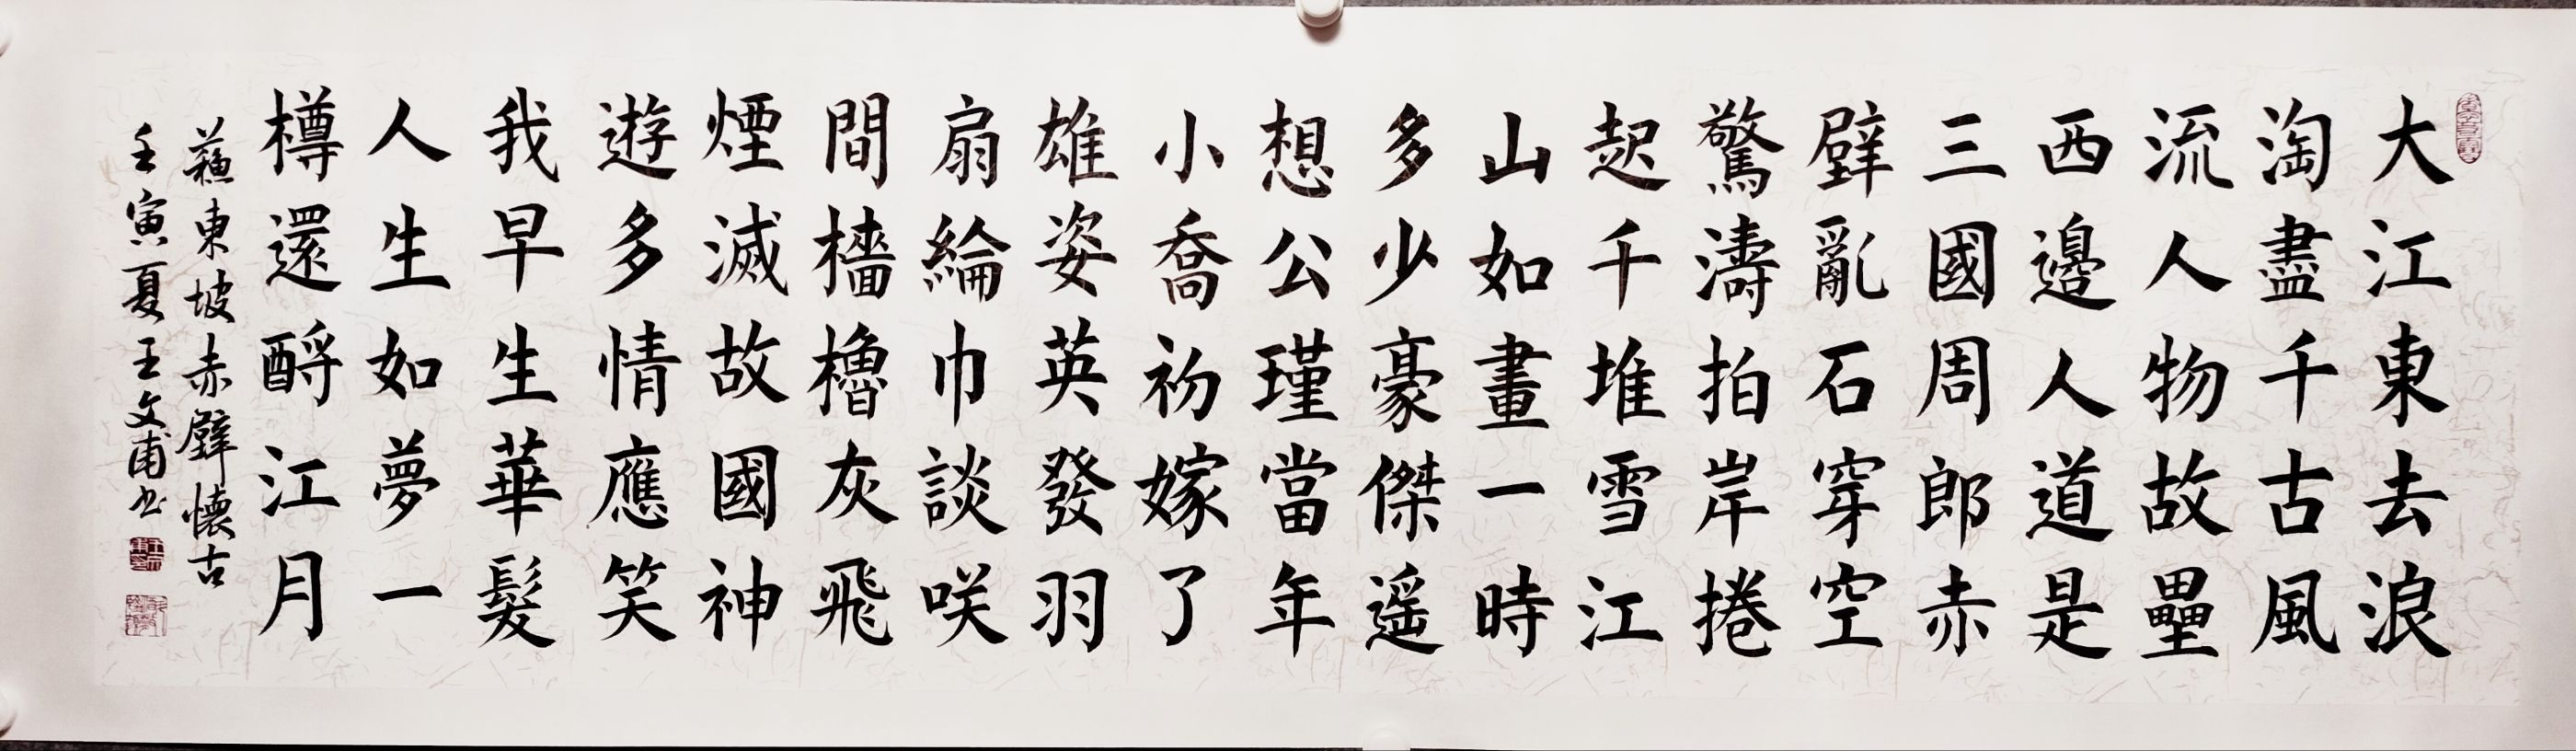 大江東去浪
淘盡千古風
流人物故壘
西邊人道是
三國周郎赤
壁亂石穿空
驚濤拍岸捲
起千堆雪江
山如畫一時
多少豪傑遥
想公瑾當年
小喬初嫁了
雄姿英發羽
扇綸巾談咲
間檣櫓灰飛
煙滅故國神
遊多情應笑
我早生華髮
人生如夢一
樽還酹江月
蘓東坡赤壁懷古
壬寅夏王文甫书